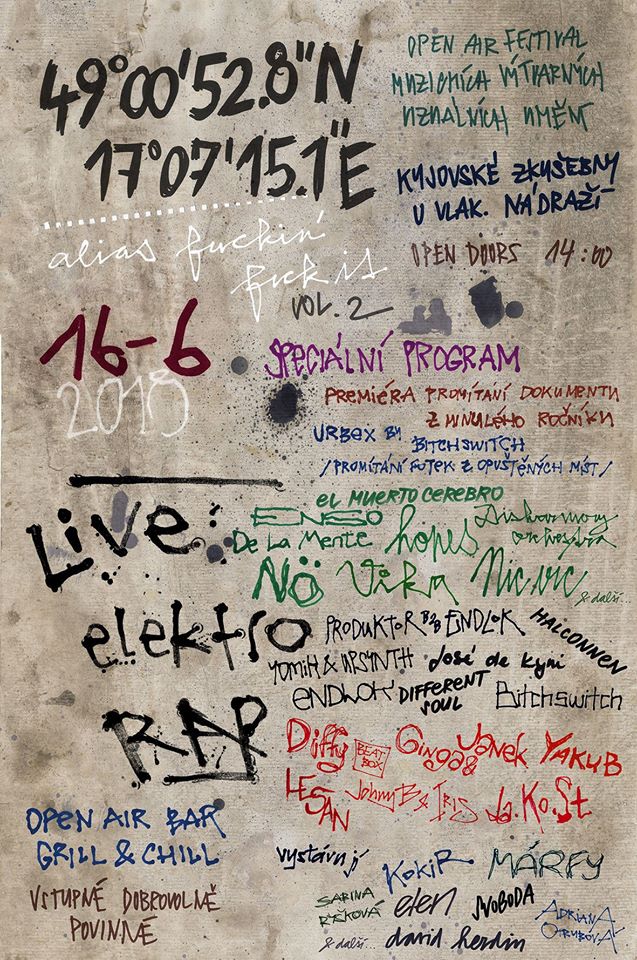 49°00'52.8"N
17°07'15.1"E
OPEN AIR FESTIVAL
MUZICKÍCH VÍTVARNÝCH
VIZUALNÍCH UMĚNÍ
KYJOVSKÉ ZKUŠEBNY
U VLAK. NÁDRAŽÍ
OPEN DOORS 14:00
alias fuckin'
fuck is
VOL. 2
16-6
2018
SPECIÁLNÍ PROGRAM
PREMIÉRA PROMÍTÁNÍ DOKUMENTU
Z MINULÉHO ROČNÍKU
URBEX BY BITCHSWITCH
/PROMÍTÁNÍ FOTEK Z OPUŠTĚNÝCH MÍST/
Live:
EL MUERTO CEREBRO
ENSO
De La Mente
hopes
Diskarmony
orchestra
NÖ
Vika
Nic.vic
& další...
elektro
PRODUKTOR B2B ENDLOK
HALCONNEN
YOMIH & UPSYNTH
José de Kyni
ENDLOK
DIFFERENT
SOUL
Bitchswitch
RAP
Diffy
BEAT
BOX
Ginga &
Janek
YAKUB
LESAN
Johny B & IRIS
Ja.Ko.St
OPEN AIR BAR
GRILL & CHILL
VSTUPNÉ DOBROVOLNĚ
POVINNÉ
vystavují
KOKIR
MÁRFY
SABINA
elen
SVOBODA
ADRIANA
OTRUBOVÁ
& další...
david